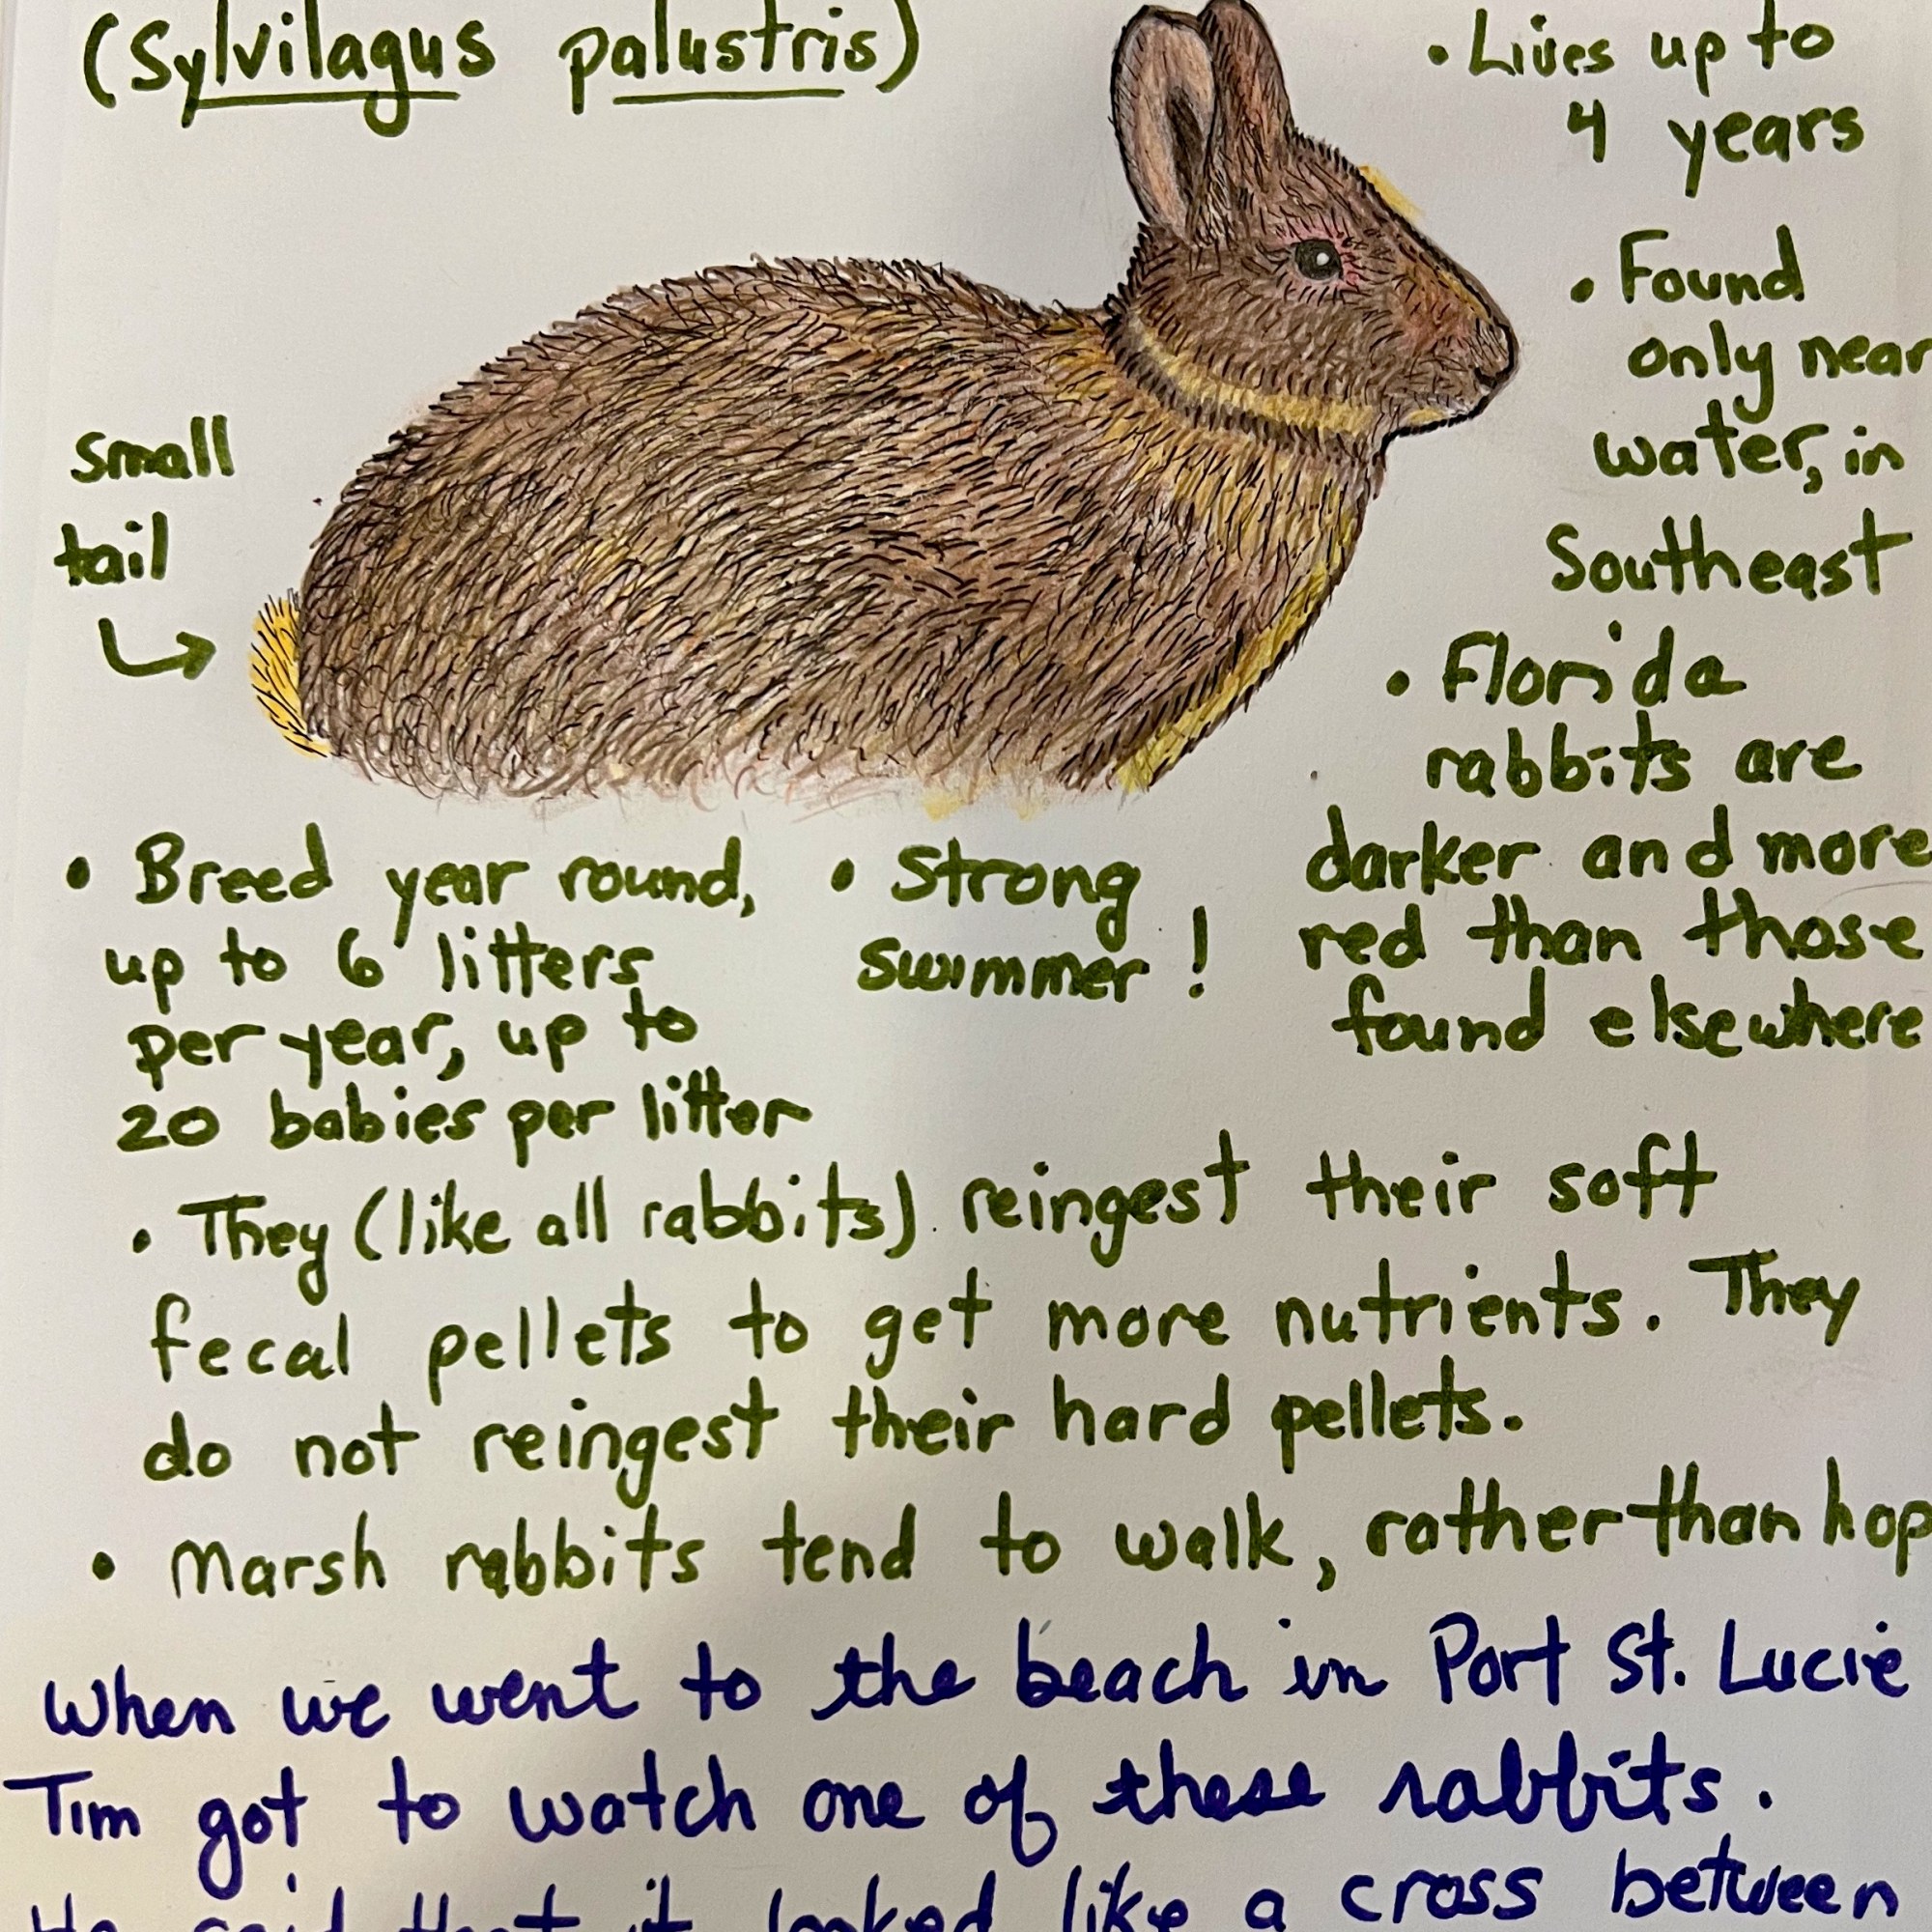 (Sylvilagus palustris)
• Lives up to
4 years
• Found
only near
water, in
Southeast
small
tail
• Florida
rabbits are
darker and more
red than those
found elsewhere
• Breed year round,
up to 6 litters
per year, up to
20 babies per litter
• Strong
swimmer!
• They (like all rabbits) reingest their soft
fecal pellets to get more nutrients. They
do not reingest their hard pellets.
• Marsh rabbits tend to walk, rather than hop
When we went to the beach in Port St. Lucie
Tim got to watch one of these rabbits.
He said that it looked like a cross between